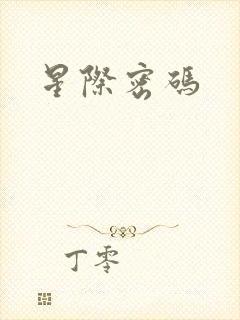 星際密碼
丁零